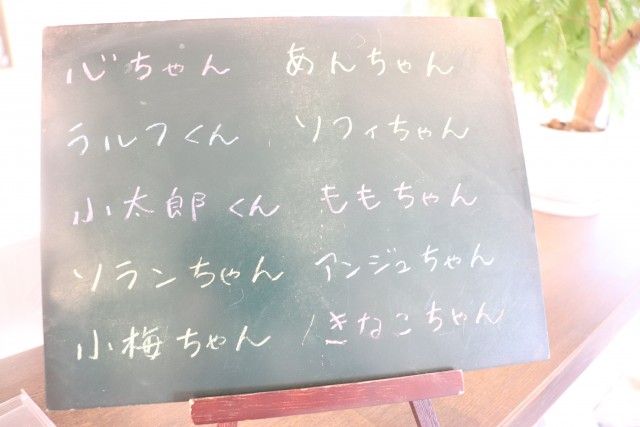 心ちゃん あんちゃん
ラルフくん ソフィちゃん
小太郎くん ももちゃん
ソランちゃん アンジュちゃん
小梅ちゃん きなこちゃん